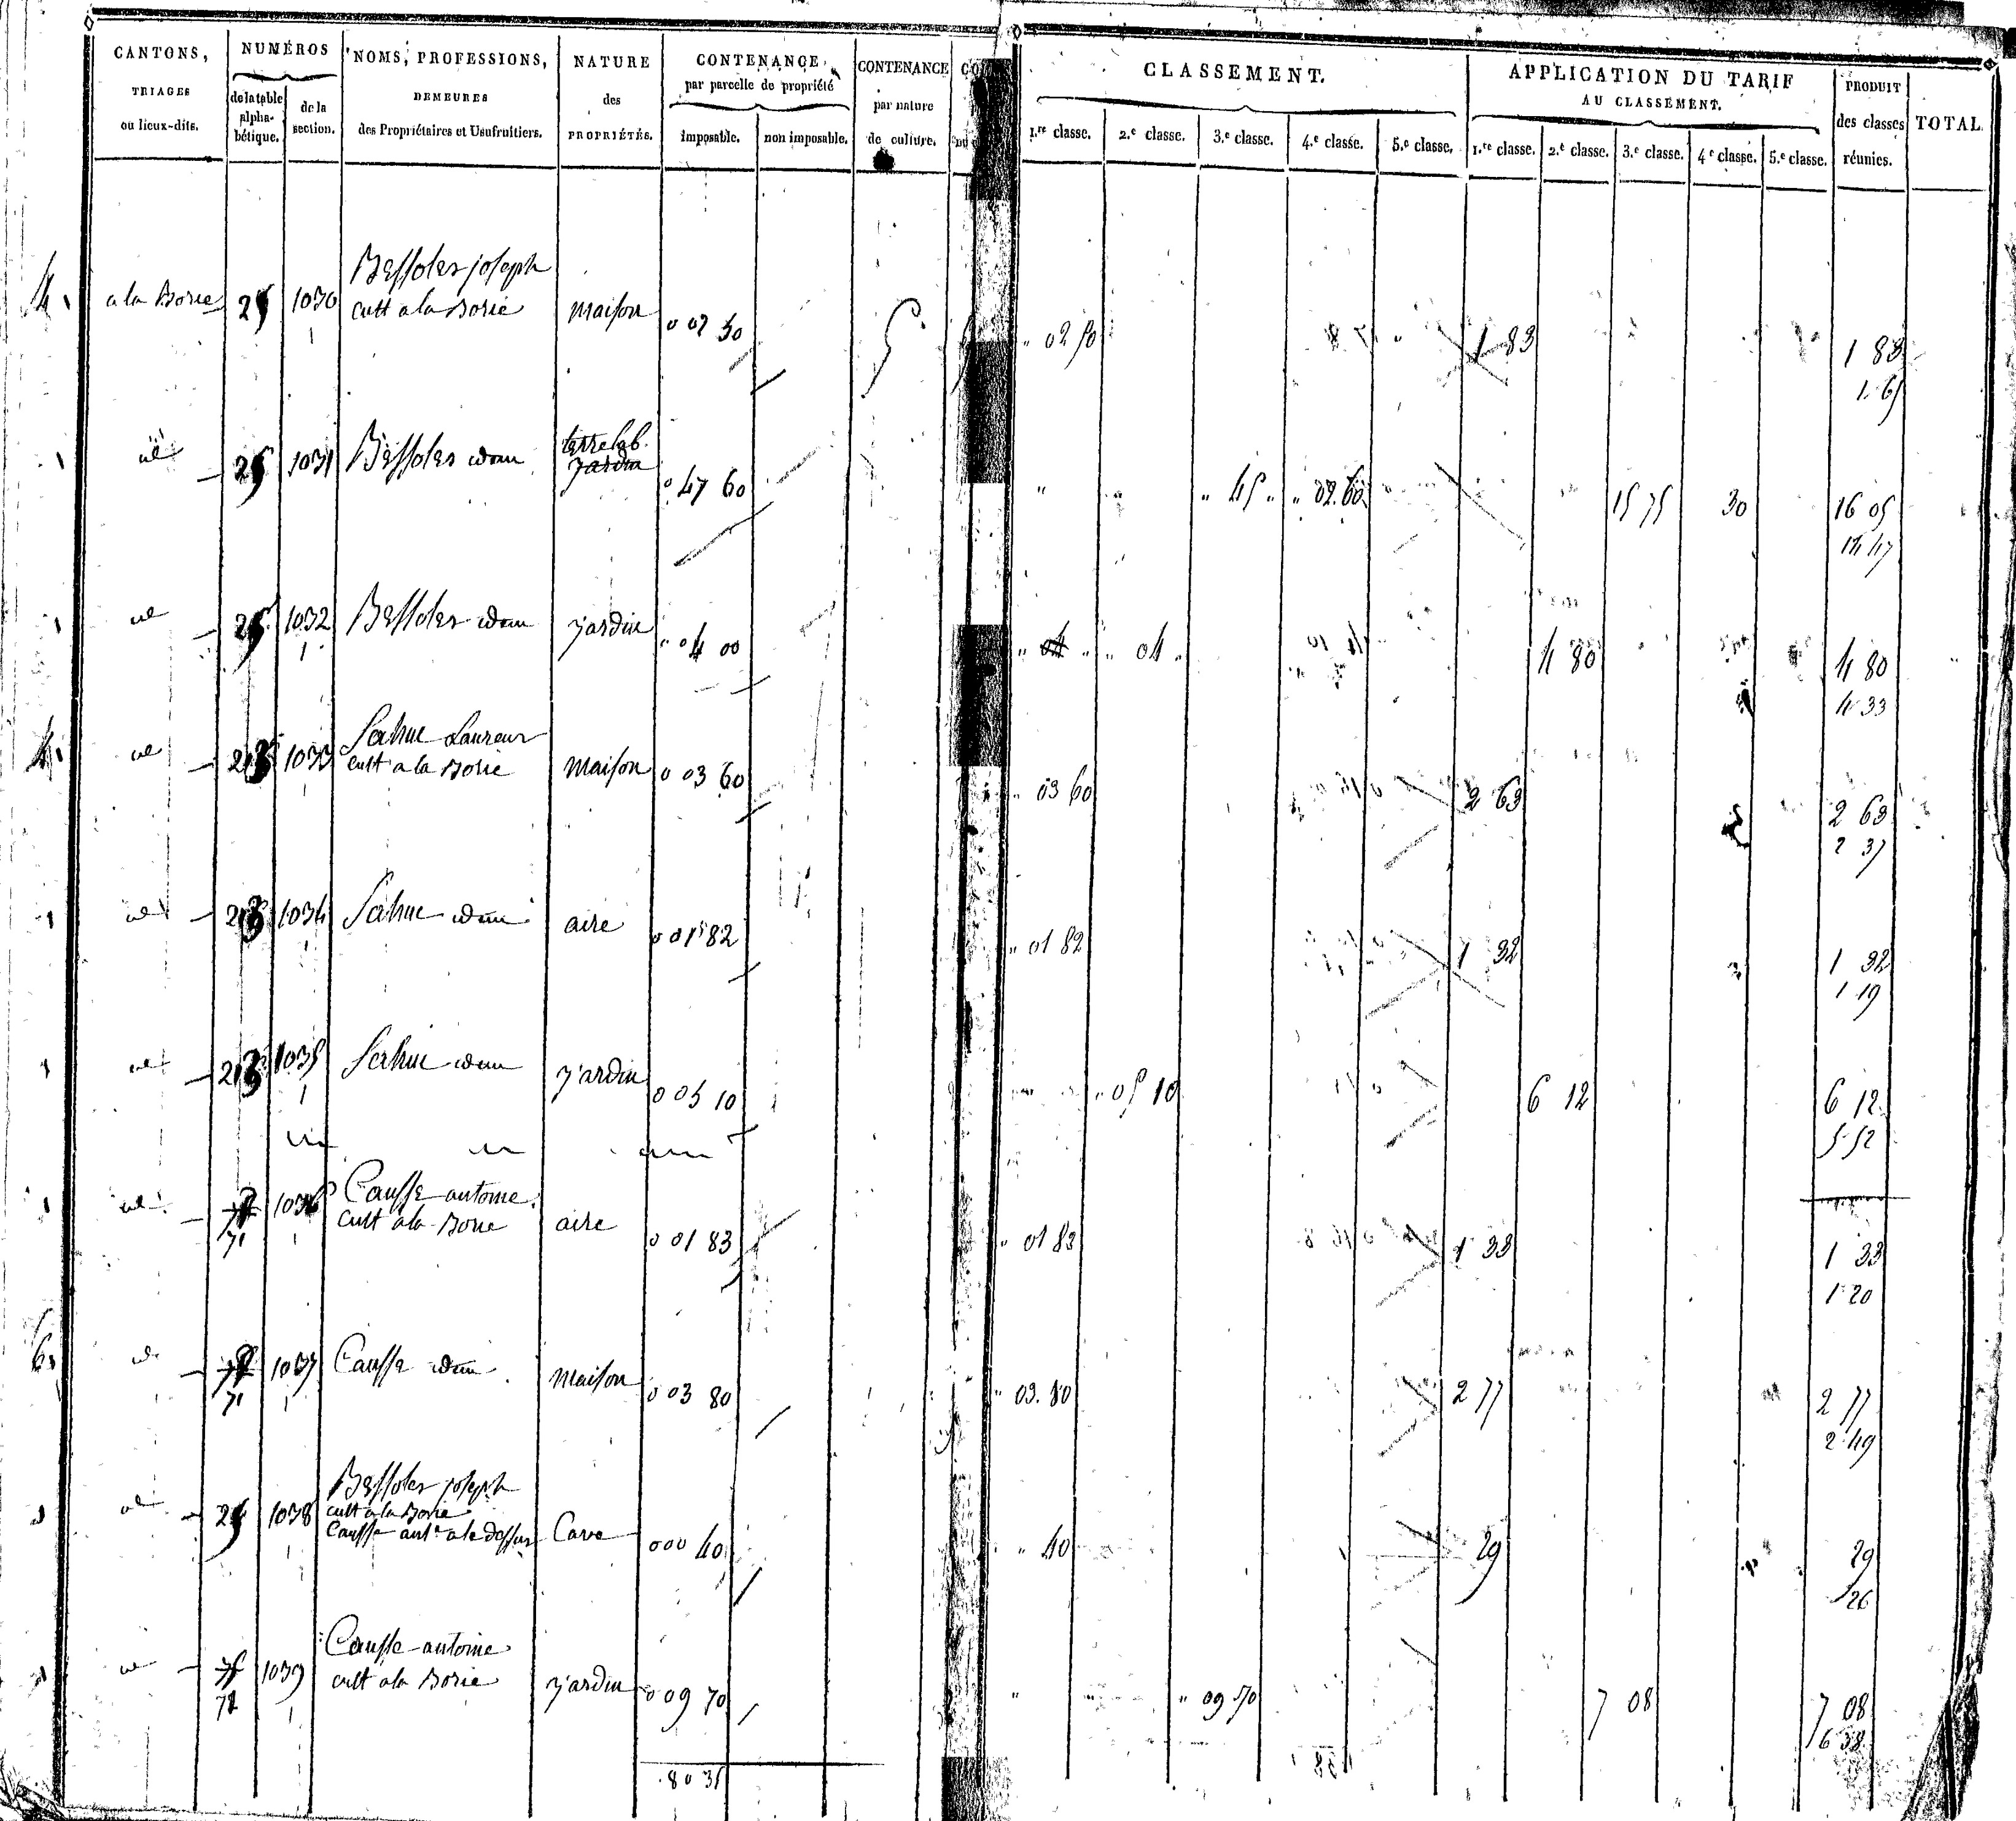 CANTONS, TRIAGES ou lieux-dits. NUMÉROS de la table alphabétique. de la section. NOMS, PROFESSIONS, DEMEURES des Propriétaires et Usufruitiers. NATURE des PROPRIÉTÉS. CONTENANCE par parcelle de propriété imposable. non imposable. CONTENANCE par nature de culture.
CLASSEMENT. 1.re classe. 2.e classe. 3.e classe. 4.e classe. 5.e classe. APPLICATION DU TARIF AU CLASSEMENT. 1.re classe. 2.e classe. 3.e classe. 4.e classe. 5.e classe. PRODUIT des classes réunies. TOTAL.
Bessoles joseph
a la Borie 25 1030 cult a la Borie maison 0 02 50 " 02 50 1 83 1 83
1 65
terre lab.
id 25 1031 Bessoles idem jardin 0 47 60 " " " 45 " " 02 60 15 75 30 16 05
14 47
id 25 1032 Bessoles idem jardin " 04 00 " 04 " " 04 " 4 80 4 80
4 33
Sahuc
id 1033 cult a la Borie maison 0 03 60 " 03 60 2 63 2 63
2 37
id 1034 Sahuc idem aire 0 01 82 " 01 82 1 32 1 32
1 19
id 1035 Sahuc idem jardin 0 05 10 " 05 10 6 12 6 12
5 52
Causse antoine
id 1036 cult a la Borie aire 0 01 83 " 01 83 1 33 1 33
71
1 20
id 1037 Causse idem maison 0 03 80 " 03 80 2 77 2 77
71
2 49
Bessoles joseph
id 25 1038 cult a la Borie
Causse ant.e a le dessus Cave 0 00 40 " 40 29 29
26
Causse antoine
id 1039 cult a la Borie jardin 0 09 70 " " " 09 70 7 08 7 08
71
6 38
80 35